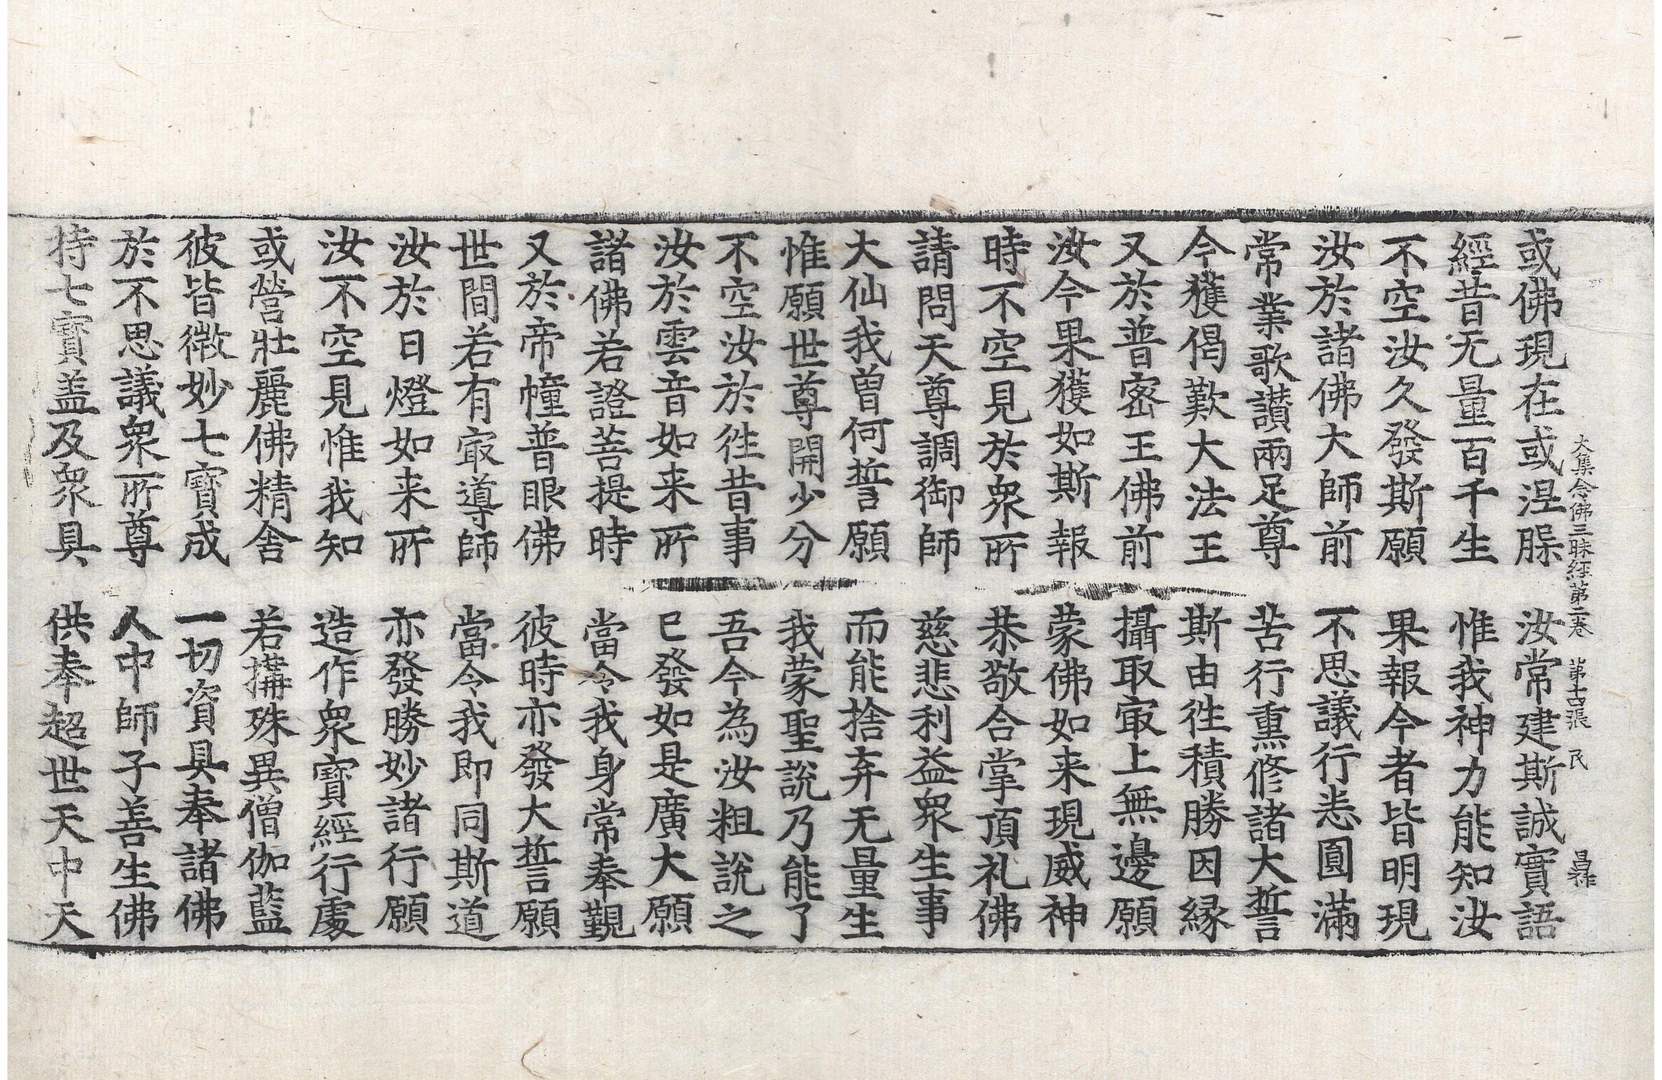 大集念佛三昧經第二卷 第十四張 民
或佛現在或涅槃 汝常建斯誠實語
經昔无量百千生 惟我神力能知汝
不空汝久發斯願 果報今者皆明現
汝於諸佛大師前 不思議行悉圓滿
常業歌讃兩足尊 苦行熏修諸大誓
今獲偈歎大法王 斯由徃積勝因縁
又於普密王佛前 攝取㝡上無邊願
汝今果獲如斯報 蒙佛如来現威神
時不空見於衆所 恭敬合掌頂礼佛
請問天尊調御師 慈悲利益衆生事
大仙我曽何誓願 而能捨弃无量生
惟願世尊開少分 我蒙聖說乃能了
不空汝於徃昔事 吾今為汝粗說之
汝於雲音如来所 已發如是廣大願
諸佛若證菩提時 當令我身常奉覲
又於帝幢普眼佛 彼時亦發大誓願
世間若有㝡導師 當令我即同斯道
汝於日燈如来所 亦發勝妙諸行願
汝不空見惟我知 造作衆寳經行處
或營壯麗佛精舎 若搆殊異僧伽藍
彼皆微妙七寳成 一切資具奉諸佛
於不思議衆所尊 人中師子善生佛
持七寳盖及衆具 供奉超世天中天